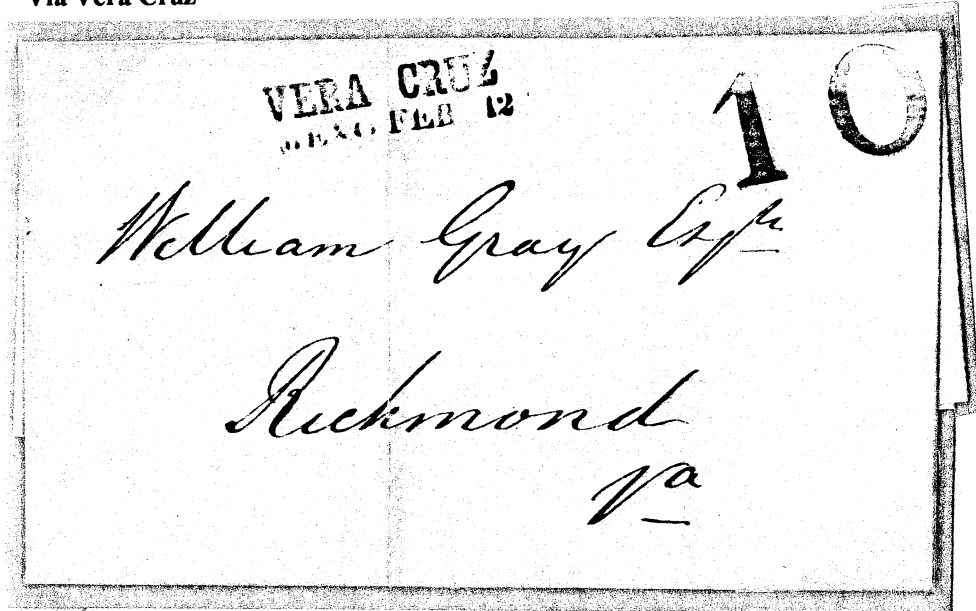 Via Vera Cruz
VERA CRUZ
MEXO FEB 12
10
William Gray Esqr
Richmond
Va